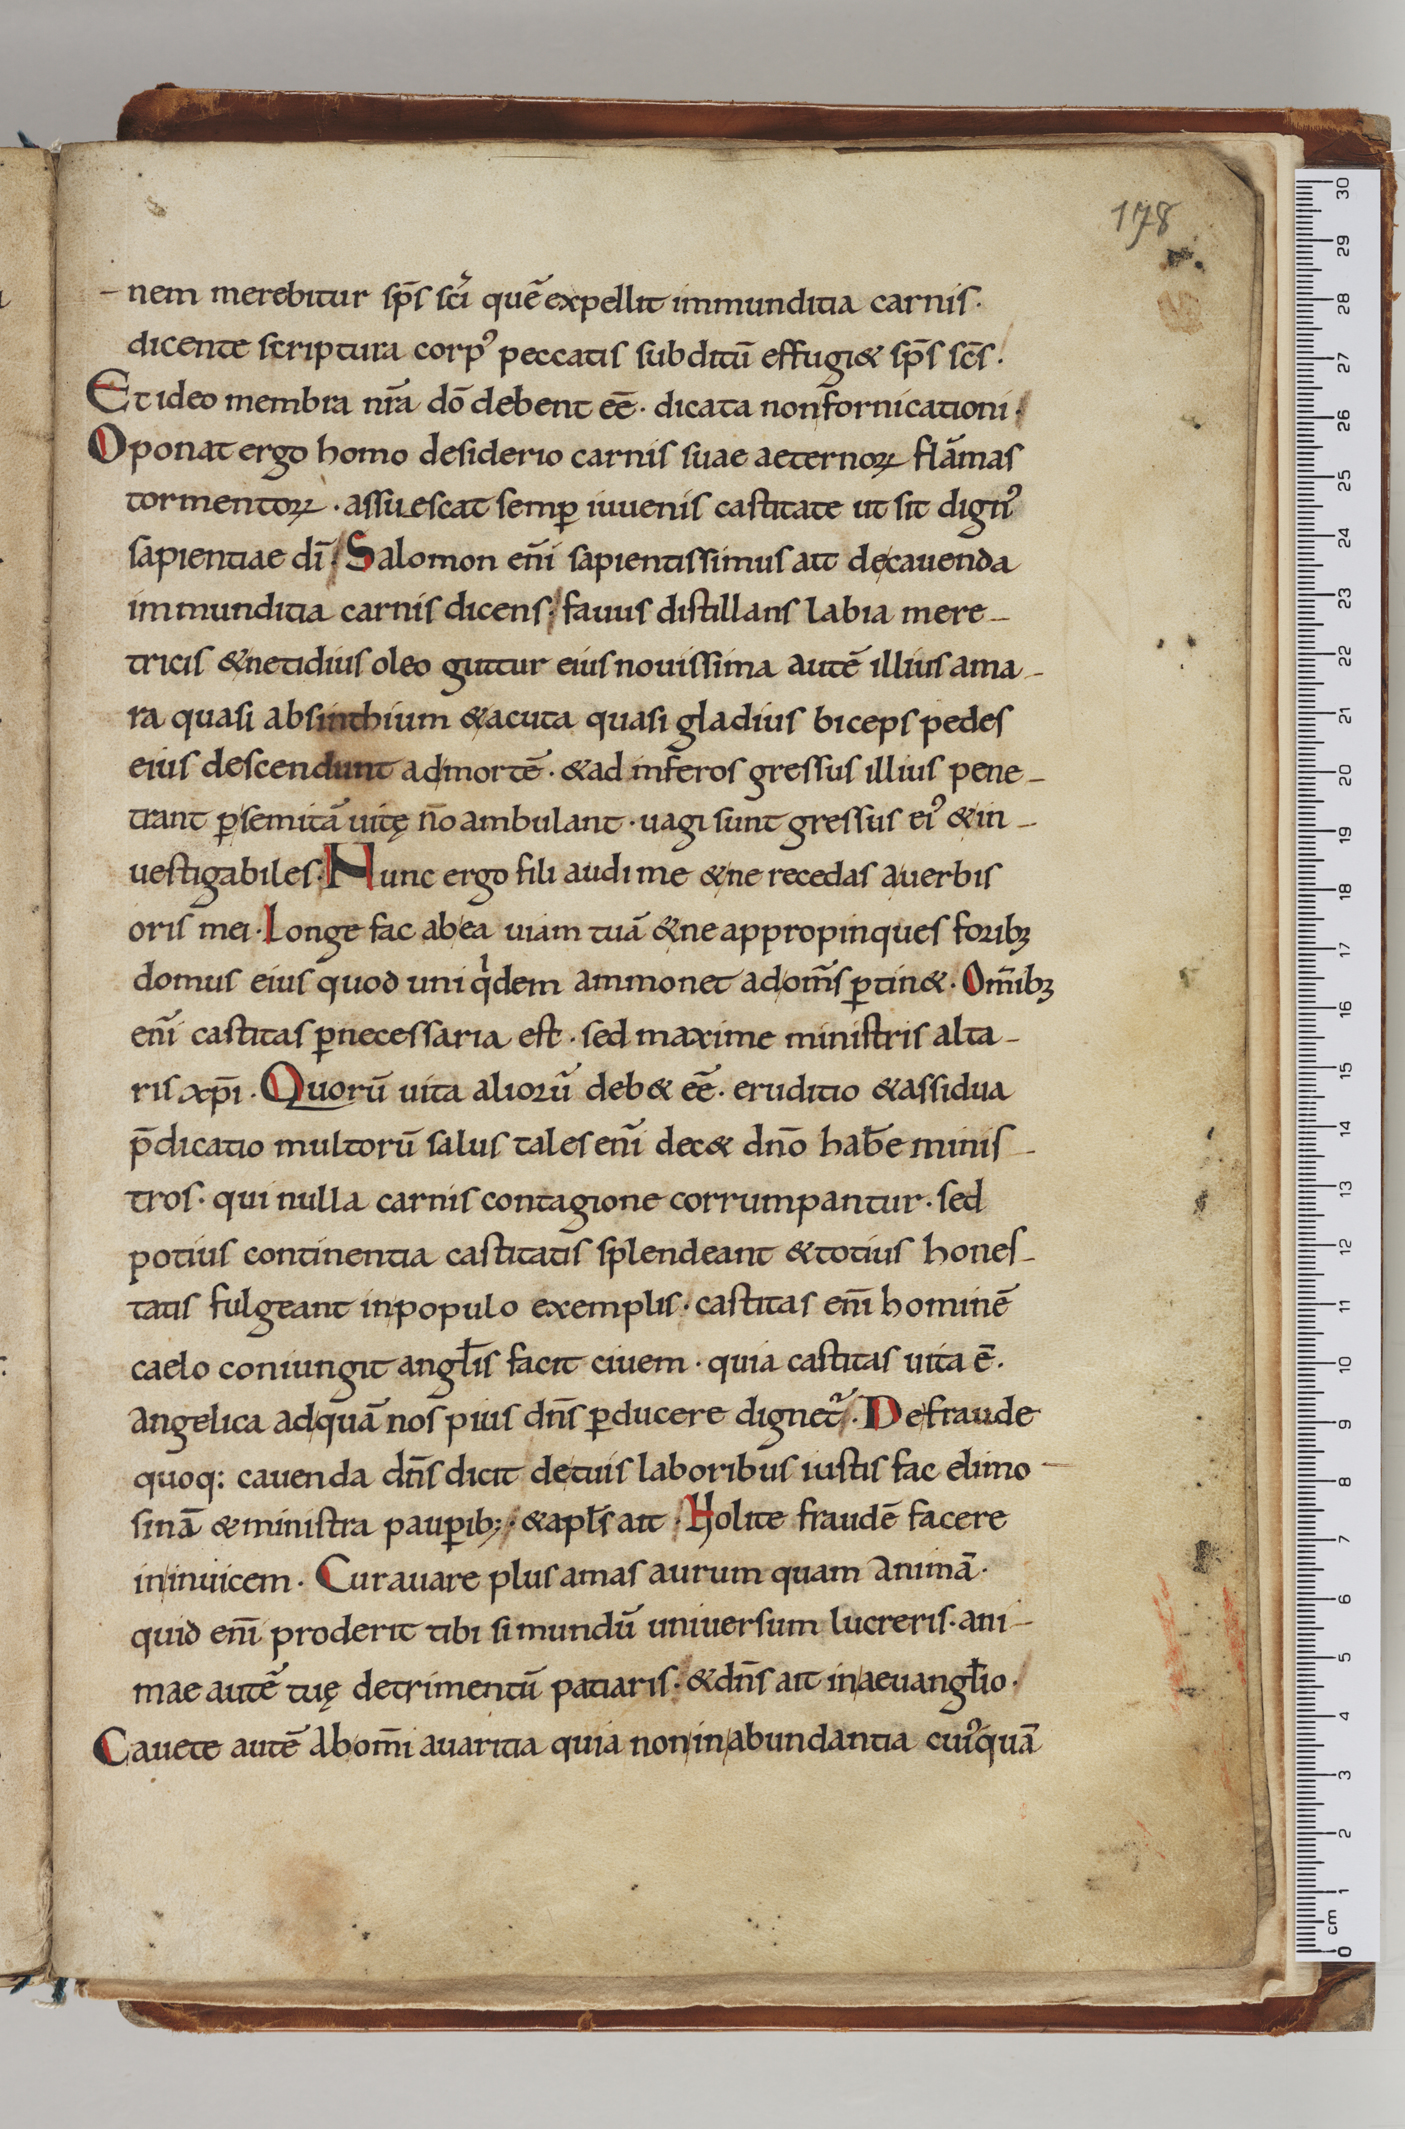 178
-nem merebitur sp̄s sc̄i quē expellit immunditia carnis.
dicente scriptura corpꝰ peccatis subditū effugi& sp̄s sc̄s.
Et ideo membra nr̄a dō debent eē. dicata non fornicationi.
Oponat ergo homo desiderio carnis suae aeternoꝝ flāmas
tormentoꝝ. assuescat semꝑ iuuenis castitate ut sit dignꝰ
sapientiae dī. Salomon enī sapientissimus ait de cauenda
immunditia carnis dicens. fauus distillans labia mere-
tricis & netidius oleo guttur eius nouissima autē illius ama-
ra quasi absinthium & acuta quasi gladius biceps pedes
eius descendunt ad mortē. & ad inferos gressus illius pene-
trant ꝑ semitā uitę nō ambulant. uagi sunt gressus eiꝰ & in-
uestigabiles. Nunc ergo fili audi me & ne recedas a uerbis
oris mei. Longe fac ab ea uiam tuā & ne appropinques foribꝫ
domus eius quod uni qͥdem ammonet ad om̄s ꝑtin&. Om̄ibꝫ
enī castitas ꝑnecessaria est. sed maxime ministris alta-
ris xp̄i. Quorū uita aliorū deb& eē. eruditio & assidua
p̄dicatio multorū salus tales enī dec& dn̄o hab̄e minis-
tros. qui nulla carnis contagione corrumpantur. sed
potius continentia castitatis splendeant & totius hones-
tatis fulgeant in populo exemplis. castitas enī hominē
caelo coniungit angl̄is facit ciuem. quia castitas uita ē.
angelica ad quā nos pius dn̄s ꝑducere dignet᷑. De fraude
quoq: cauenda dn̄s dicit de tuis laboribus iustis fac elimo-
sinā & ministra pauꝑib;. & apl̄s ait. Nolite fraudē facere
in inuicem. Cur auare plus amas aurum quam animā.
quid enī proderit tibi si mundū uniuersum lucreris. ani-
mae autē tuę detrimentū patiaris. & dn̄s ait in aeuangl̄io.
Cauete autē ab om̄i auaritia quia non in abundantia cuiꝰquā